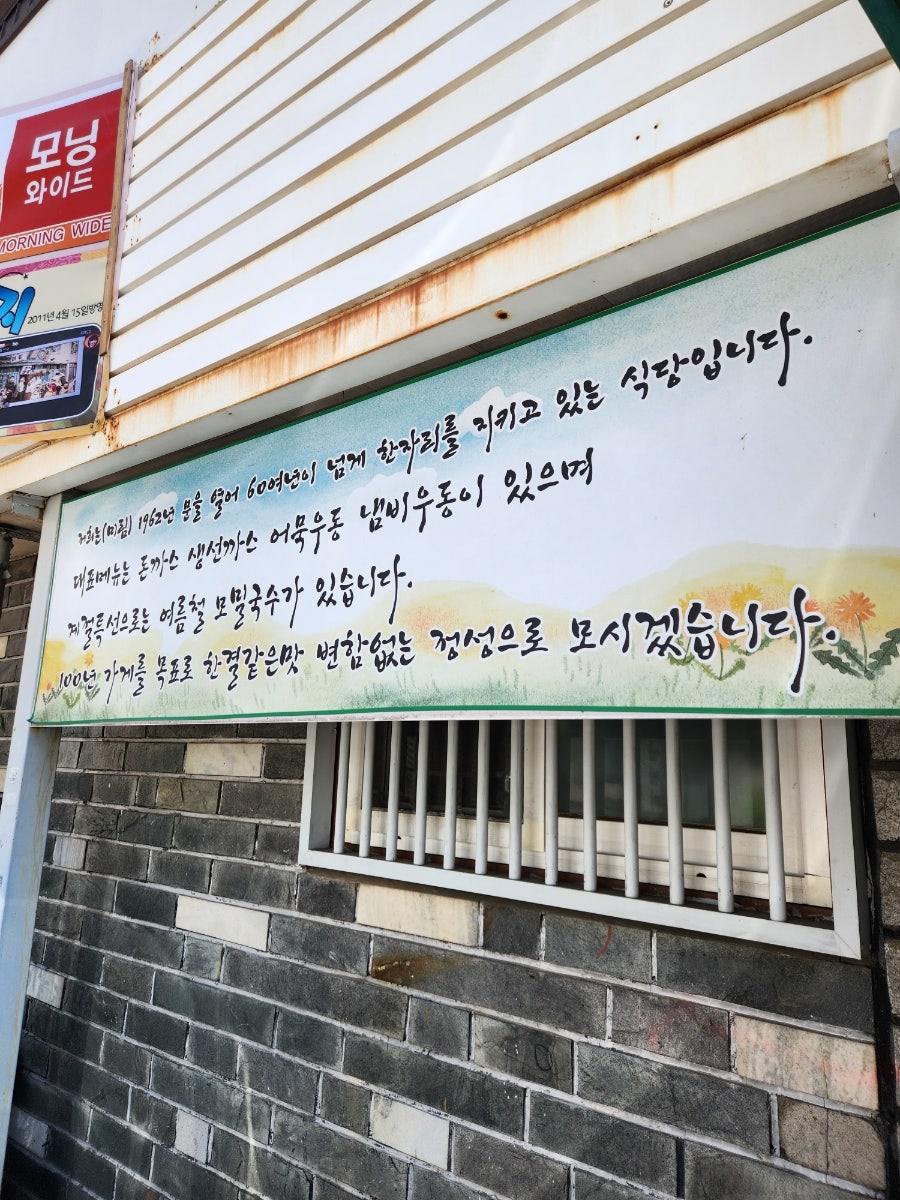 모닝
와이드
MORNING WIDE
2011년 4월 15일방영
저희는(미림) 1962년 문을 열어 60여년이 넘게 한자리를 지키고 있는 식당입니다.
대표메뉴는 돈까스 생선까스 어묵우동 냄비우동이 있으며
계절특선으로는 여름철 모밀국수가 있습니다.
100년 가게를 목표로 한결같은맛 변함없는 정성으로 모시겠습니다.